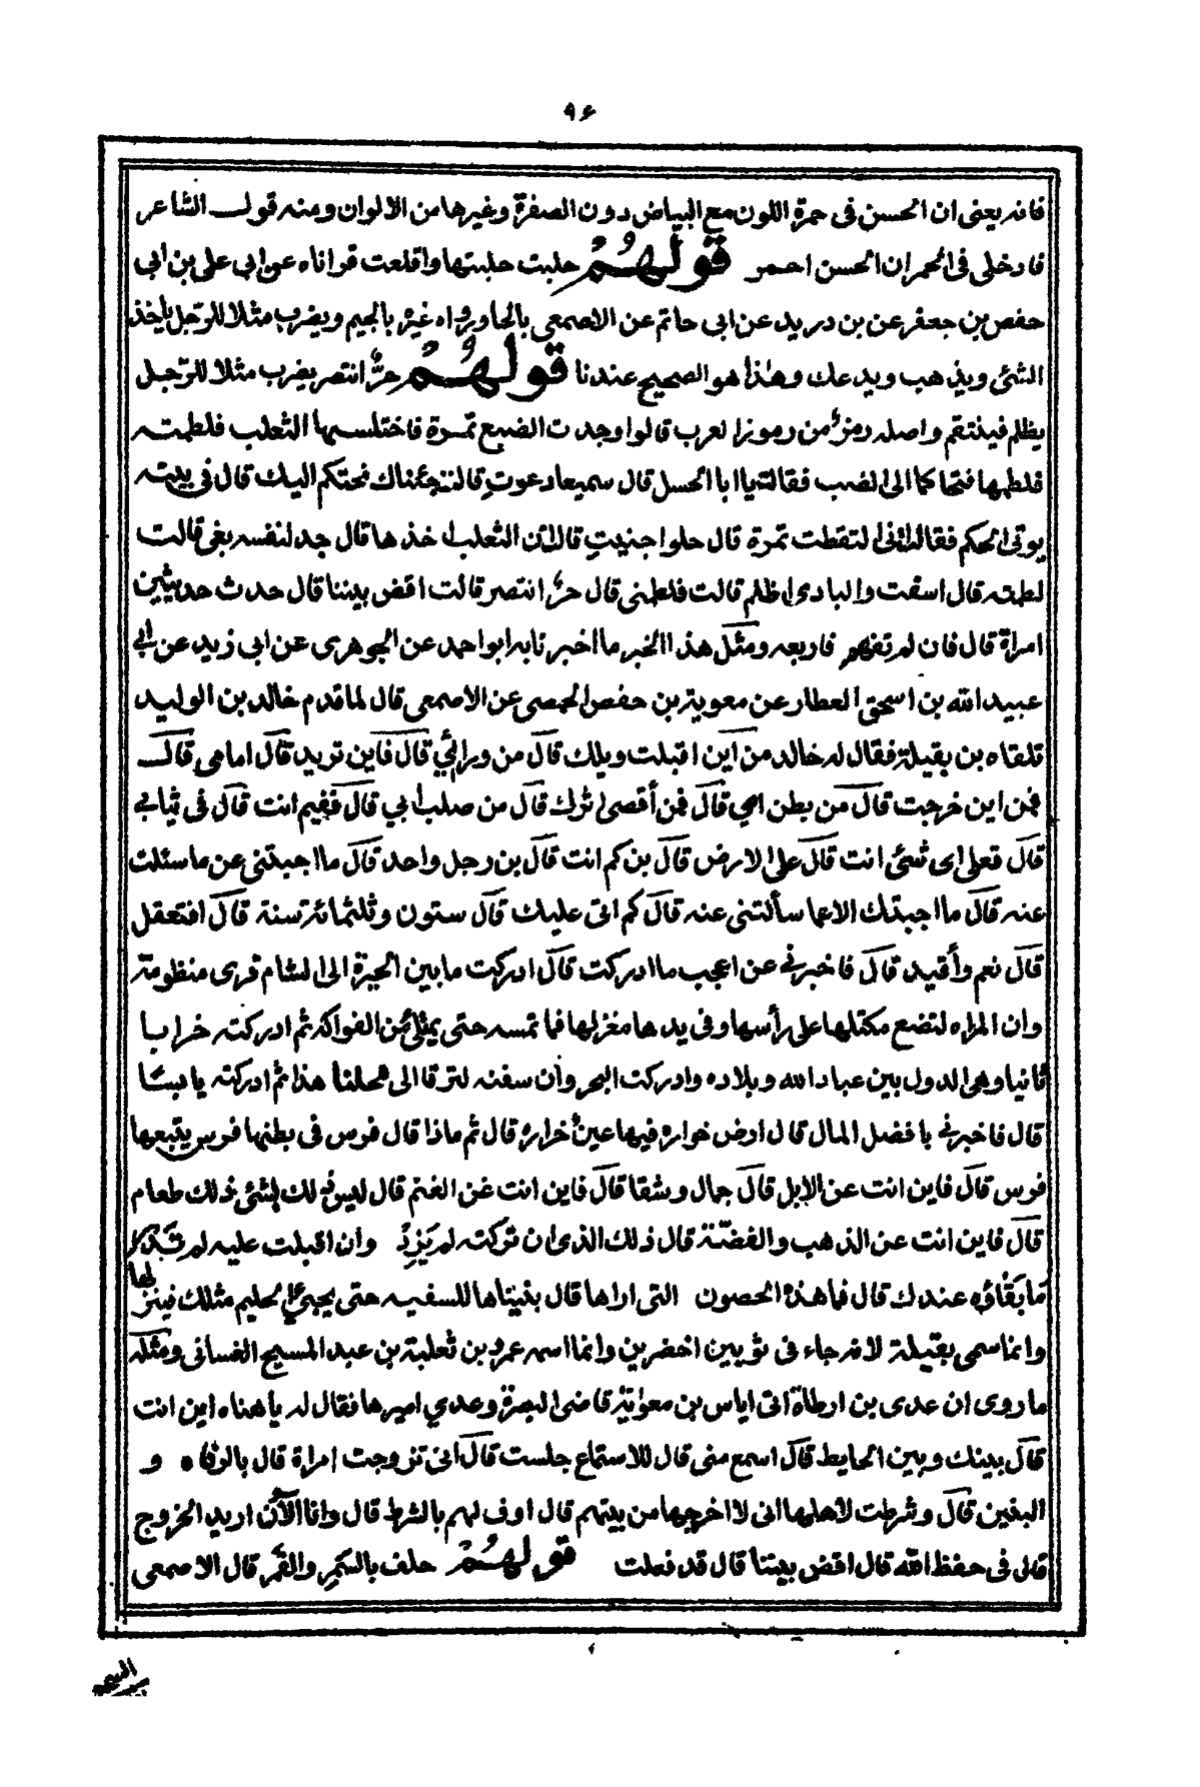 ٩۶
فانه يعنى ان الحسن فى حمرة اللون مع البياض دون الصفرة وغيرها من الالوان ومنه قول الشاعر
فادخلى فى الحمران الحسن احمر قولهُمْ حلبت حلبتها واقلعت قراناه عن ابى على بن ابى
حفص بن جعفر عن بن دريد عن ابى حاتم عن الاصمعى بالحا ورواه غيره بالجيم ويضرب مثلا للرّجل ياخذ
الشئ ويذهب ويدعك وهذا هو الصحيح عندنا قولهُمْ حرٌّ انتصر يضرب مثلا للرّجل
يظلم فينتقم واصله رمزٌ من رموز العرب قالوا وجدت الضبع تمرة فاختلسها الثعلب فلطمته
فلطمها فتحاكما الى الضب فقالت يا ابا الحسل قال سميعا دعوتِ قالت جئناك نحتكم اليك قال فى بيته
يوتى الحكم فقالت انى التقطت تمرة قال حلوا جنيتِ قالت ان الثعلب اخذها قال جد لنفسه بغى قالت
لطمته قال اسفت والبادى اظلم قالت فلطمنى قال حرٌّ انتصر قالت اقض بيننا قال حدث حديثين
امراة قال فان لم تفهم فاربعه ومثل هذا الخبر ما اخبرنا به ابو احمد عن الجوهرى عن ابى زيد عن ابى
عبيد الله بن اسحق العطار عن معوية بن حفص الحمصى عن الاصمعى قال لما قدم خالد بن الوليد
تلقاه بن بقيلة فقال له خالد من اين اقبلت ويلك قال من ورائي قال فاين تريد قال امامى قال
فمن اين خرجت قال من بطن امي قال فمن أقصى اثرك قال من صلب ابي قال ففيم انت قال فى ثيابي
قال فعلى اى شئ انت قال على الارض قال بن كم انت قال بن رجل واحد قال ما اجبتنى عن ما سئلت
عنه قال ما اجبتك الا عما سألتنى عنه قال كم اتى عليك قال ستون وثلثمائة سنة قال افتعقل
قال نعم وأقيد قال فاخبرني عن اعجب ما ادركت قال ادركت ما بين الحيرة الى الشام قرى منظومة
وان المراه لتضع مكتلها على رأسها وفى يدها مغزلها فما تمسه حتى يمتلئ من الفواكه ثم ادركته خرابا
ثانيا وهى الدول بين عباد الله وبلاده وادركت البحر وان سفنه لترقا الى محلنا هذا ثم ادركته يابسًا
قال فاخبرني بافضل المال قال ارض خواره فيها عينٌ خراره قال ثم ماذا قال فرس فى بطنها فرس يتبعها
فرس قال فاين انت عن الابل قال جمال وشقا قال فاين انت عن الغنم قال ليس لك بشئ ذلك طعام
قال فاين انت عن الذهب والفضّة قال ذلك الذى ان تركته لم يَزِدْ وان اقبلت عليه لم
مَا بَقَاؤه عندك قال فما هذه الحصون التى اراها قال بنيناها للسفيه حتى يجيئ الحليم مثلك فينزلها
وانما سمى بقيلة لانه جاء فى ثوبين اخضرين وانما اسمه عمرو بن ثعلبة بن عبد المسيح الغسانى ومثله
ما روى ان عدى بن ارطاة اتى اياس بن معوٰية قاضى البصرة وعدي اميرها فقال له يا هناه اين انت
قال بينك وبين الحايط قال اسمع منى قال للاستماع جلست قال انى تزوجت امراة قال بالرفاه و
البنين قال وشرطت لاهلها انى لا اخرجها من بيتهم قال اوف لهم بالشرط قال وانا الآن اريد الخروج
قال فى حفظ الله قال اقض بيننا قال قد فعلت قولهُمْ حلف بالسَّمَرِ والقَمَر قال الاصمعى
السمر